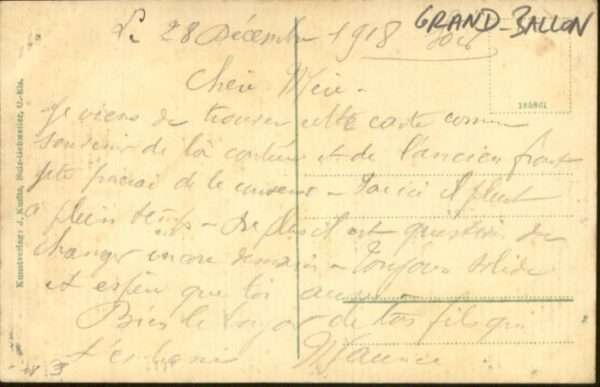 Le 28 Décembre 1918
GRAND-BALLON
Chère Mère.
Je viens de trouver cette carte comme
souvenir de la contrée et de l'ancien front
de le conserver - Par ici il pleut
à plein temps - De plus il est question de
changer encore demain - Toujours solide
et espère que toi aussi -
Bien le bonjour de ton fils qui
t'embrasse Maurice.
Kunstverlag: J. Kuntz, Sulz-Jungholtz, O.-Els.